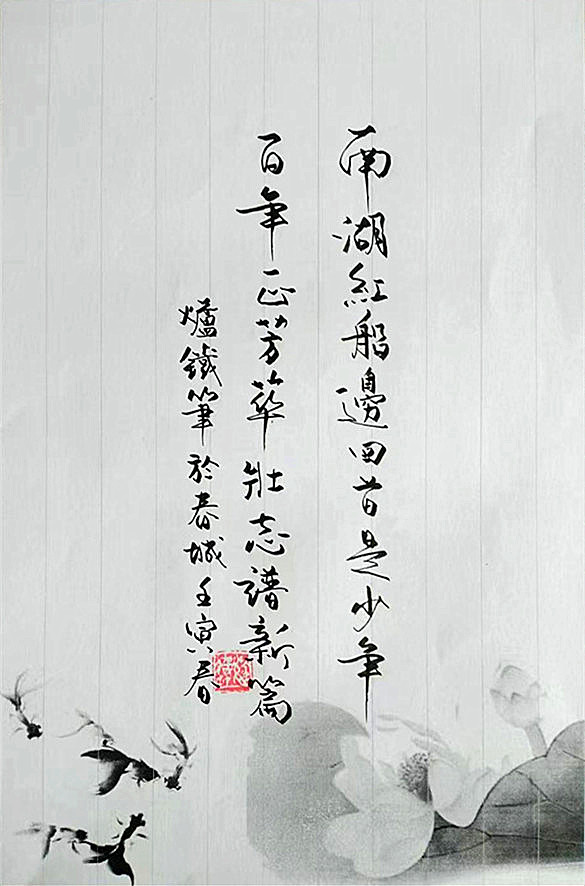 南湖紅船邊回首是少年
百年正芳華壯志譜新篇
爐鐵筆於春城壬寅春